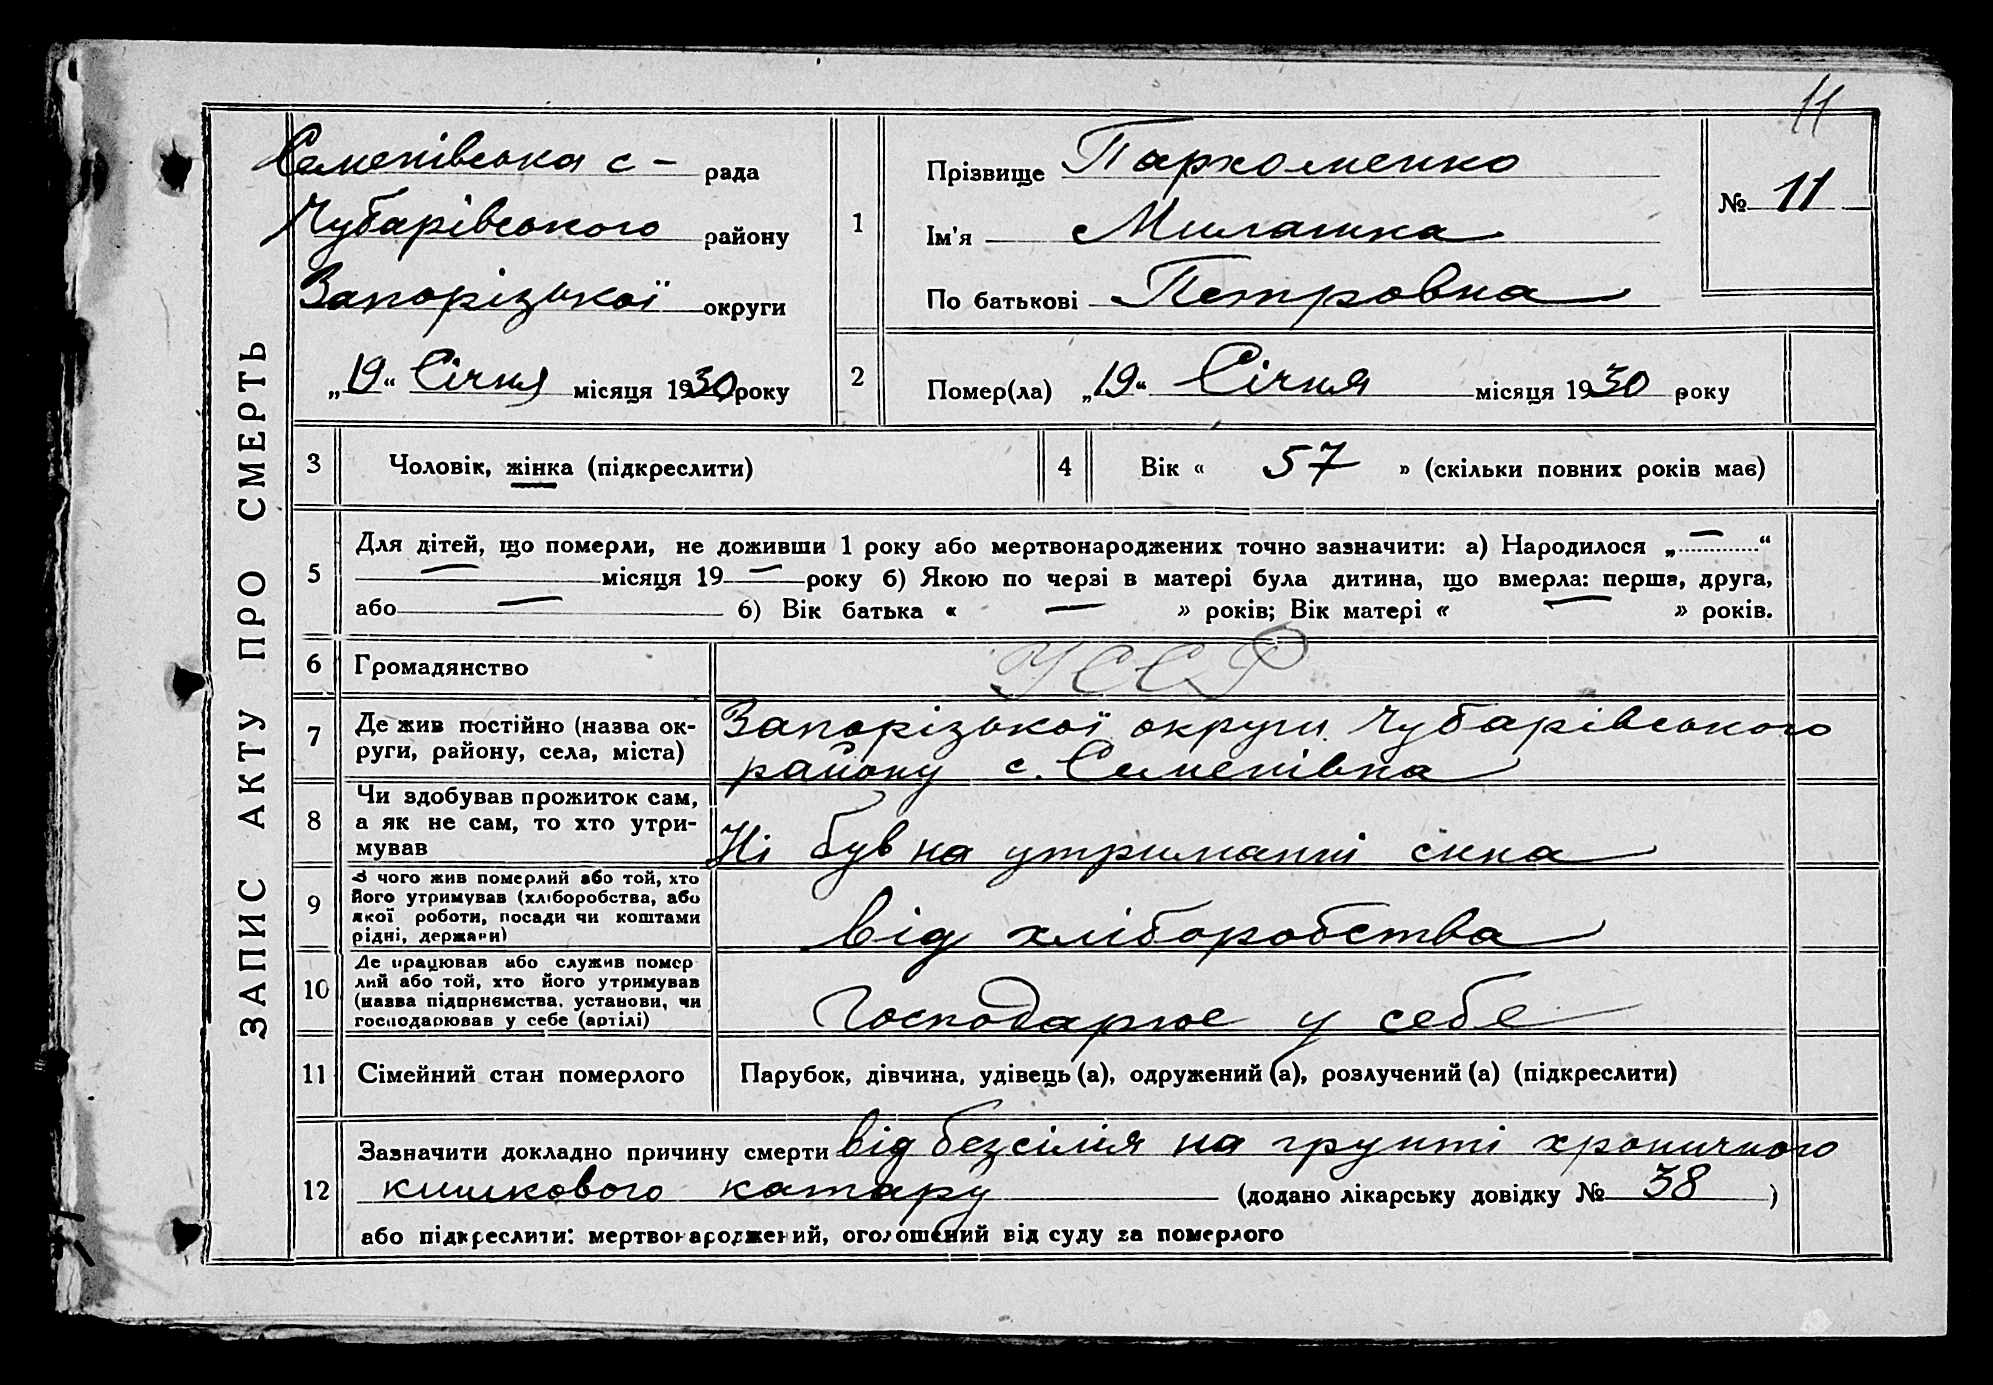 11
ЗАПИС АКТУ ПРО СМЕРТЬ
Семенівська с – рада
Чубарівського району
Запорізької округи
„19“ Січня місяця 1930 року
1
Прізвище Пархоменко
Ім'я Милашка
По батькові Петровна
№ 11
2
Помер(ла) „19“ Січня місяця 1930 року
3 Чоловік, жінка (підкреслити)
4 Вік « 57 » (скільки повних років має)
5
Для дітей, що померли, не доживши 1 року або мертвонароджених точно зазначити: а) Народилося „—“
— місяця 19 — року б) Якою по черзі в матері була дитина, що вмерла: перша, друга,
або — б) Вік батька « — » років; Вік матері « — » років.
6 Громадянство УССР
7
Де жив постійно (назва ок-
руги, району, села, міста)
Запорізької округи Чубарівського
району с. Семенівка
8
Чи здобував прожиток сам,
а як не сам, то хто утри-
мував
Ні був на утриманні сина
9
З чого жив померлий або той, хто
його утримував (хліборобства, або
якої роботи, посади чи коштами
рідні, держави)
від хліборобства
10
Де працював або служив помер
лий або той, хто його утримував
(назва підприємства, установи, чи
господарював у себе (артілі)
Господарює у себе
11 Сімейний стан померлого
Парубок, дівчина, удівець (а), одружений (а), розлучений (а) (підкреслити)
12
Зазначити докладно причину смерти від безсілія на грунті хроничного
кишкового катару (додано лікарську довідку № 38)
або підкреслити: мертвонароджений, оголошений від суду за померлого